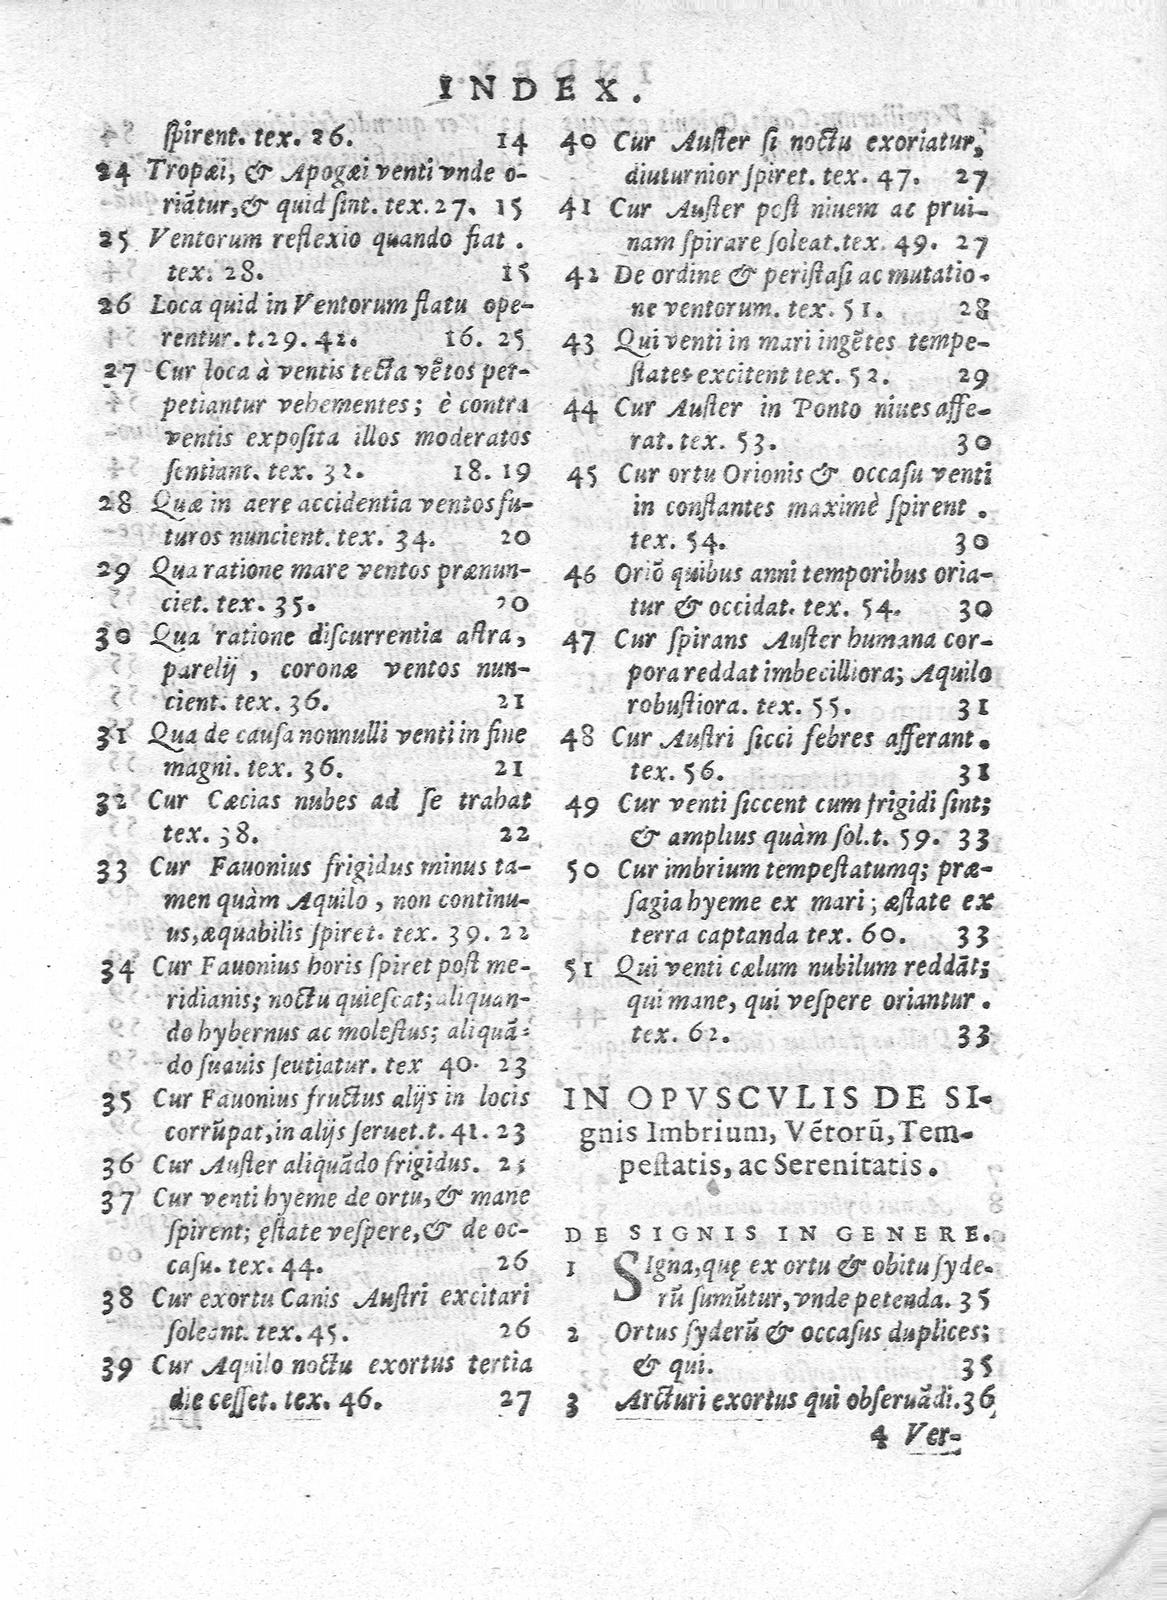 INDEX.
ſpirent. tex. 26. 14
24 Tropæi, & Apogæi venti vnde o-
riātur, & quid ſint. tex. 27. 15
25 Ventorum reflexio quando fiat.
tex. 28. 15
26 Loca quid in Ventorum flatu ope-
rentur. t. 29. 42. 16. 25
27 Cur loca à ventis tecta vẽtos per-
petiantur vehementes; è contra
ventis expoſita illos moderatos
ſentiant. tex. 32. 18. 19
28 Quæ in aere accidentia ventos fu-
turos nuncient. tex. 34. 20
29 Qua ratione mare ventos prænun-
ciet. tex. 35. 20
30 Qua ratione diſcurrentia aſtra,
parelij, coronæ ventos nun-
cient. tex. 36. 21
31 Qua de cauſa nonnulli venti in fine
magni. tex. 36. 21
32 Cur Cæcias nubes ad ſe trahat
tex. 38. 22
33 Cur Fauonius frigidus minus ta-
men quàm Aquilo, non continu-
us, æquabilis ſpiret. tex. 39. 22
34 Cur Fauonius horis ſpiret poſt me-
ridianis; noctu quieſcat; aliquan-
do hybernus ac moleſtus; aliquã-
do ſuauis ſeutiatur. tex 40. 23
35 Cur Fauonius fructus alijs in locis
corrũpat, in alijs ſeruet. t. 41. 23
36 Cur Auſter aliquãdo frigidus. 25
37 Cur venti hyeme de ortu, & mane
ſpirent; ęſtate veſpere, & de oc-
caſu. tex. 44. 26
38 Cur exortu Canis Auſtri excitari
ſoleant. tex. 45. 26
39 Cur Aquilo noctu exortus tertia
die ceſſet. tex. 46. 27
40 Cur Auſter ſi noctu exoriatur,
diuturnior ſpiret. tex. 47. 27
41 Cur Auſter poſt niuem ac prui-
nam ſpirare ſoleat. tex. 49. 27
42 De ordine & periſtaſi ac mutatio-
ne ventorum. tex. 51. 28
43 Qui venti in mari ingẽtes tempe-
ſtates excitent tex. 52. 29
44 Cur Auſter in Ponto niues affe-
rat. tex. 53. 30
45 Cur ortu Orionis & occaſu venti
in conſtantes maximè ſpirent.
tex. 54. 30
46 Oriõ quibus anni temporibus oria-
tur & occidat. tex. 54. 30
47 Cur ſpirans Auſter humana cor-
pora reddat imbecilliora; Aquilo
robuſtiora. tex. 55. 31
48 Cur Auſtri ſicci febres afferant.
tex. 56. 31
49 Cur venti ſiccent cum frigidi ſint;
& amplius quàm ſol. t. 59. 33
50 Cur imbrium tempeſtatumq; præ-
ſagia hyeme ex mari; æſtate ex
terra captanda tex. 60. 33
51 Qui venti cælum nubilum reddãt;
qui mane, qui veſpere oriantur.
tex. 62. 33
IN OPVSCVLIS DE SI-
gnis Imbrium, Vẽtorũ, Tem-
peſtatis, ac Serenitatis.
DE SIGNIS IN GENERE.
1 SIgna, quę ex ortu & obitu ſyde-
rũ ſumũtur, vnde petenda. 35
2 Ortus ſyderũ & occaſus duplices;
& qui. 35
3 Arcturi exortus qui obſeruãdi. 36
4 Ver-